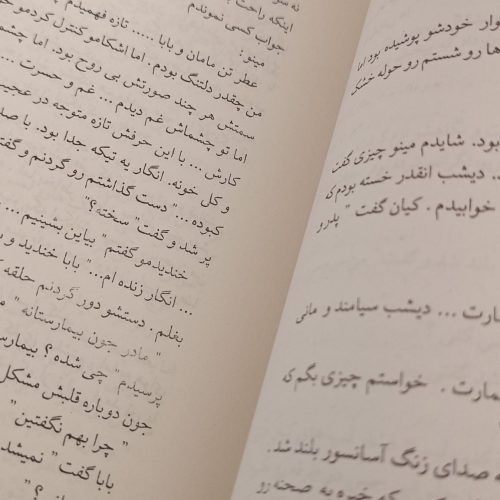 وار خودشو پوشیده بود اما
ها رو شستم رو حوله خشک
بود. شایدم مینو چیزی گفت
دیشب انقدر خسته بودم که
خوابیدم . کیان گفت " پدر و
مارت ... دیشب سیامند و مانی
مارت . خواستم چیزی بگم که
صدای زنگ آسانسور بلند شد .
که خیره به صحنه رو
اینکه راحت
جواب کسی نموندم
مینو :
عطر تن مامان و بابا ..... تازه فهمیدم
من چقدر دلتنگ بودم . اما اشکامو کنترل کردمو
سمتش هر چند صورتش بی روح بود. اما
اما تو چشماش غم دیدم ... غم و حسرت ...
کارش ... با این حرفش تازه متوجه در
و کل خونه. انگار یه تیکه جدا بود. با
کبوده ..." دست گذاشتم رو گردنم و
پر شد و گفت" سخته؟"
خندیدمو گفتم " بیاین بشینیم ...
... انگار زنده ام..." بابا خندید و
بغلم . دستشو دور گردنم حلقه
" مادر جون بیمارستانه "
پرسیدم " چی شده ؟
جون دوباره قلبش مشکل
" چرا بهم نگفتین "
بابا گفت" نمیشد